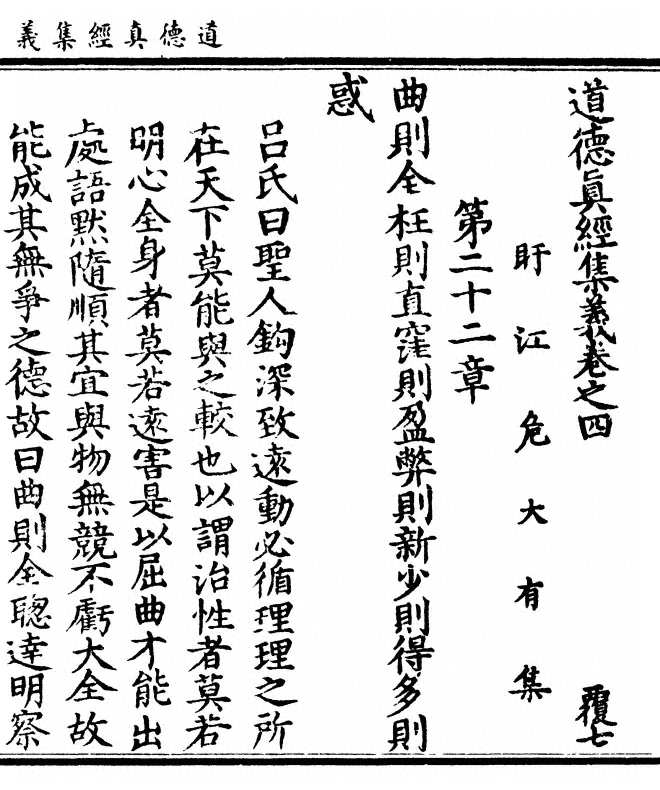 道德真經集義
道德眞經集義卷之四 覆七
盱江危大有集
第二十二章
曲則全枉則直窪則盈弊則新少則得多則
惑
呂氏曰聖人鈎深致遠動必循理理之所
在天下莫能與之較也以謂治性者莫若
明心全身者莫若遠害是以屈曲才能出
處語默隨順其宜與物無競不虧大全故
能成其無爭之德故曰曲則全聰達明察